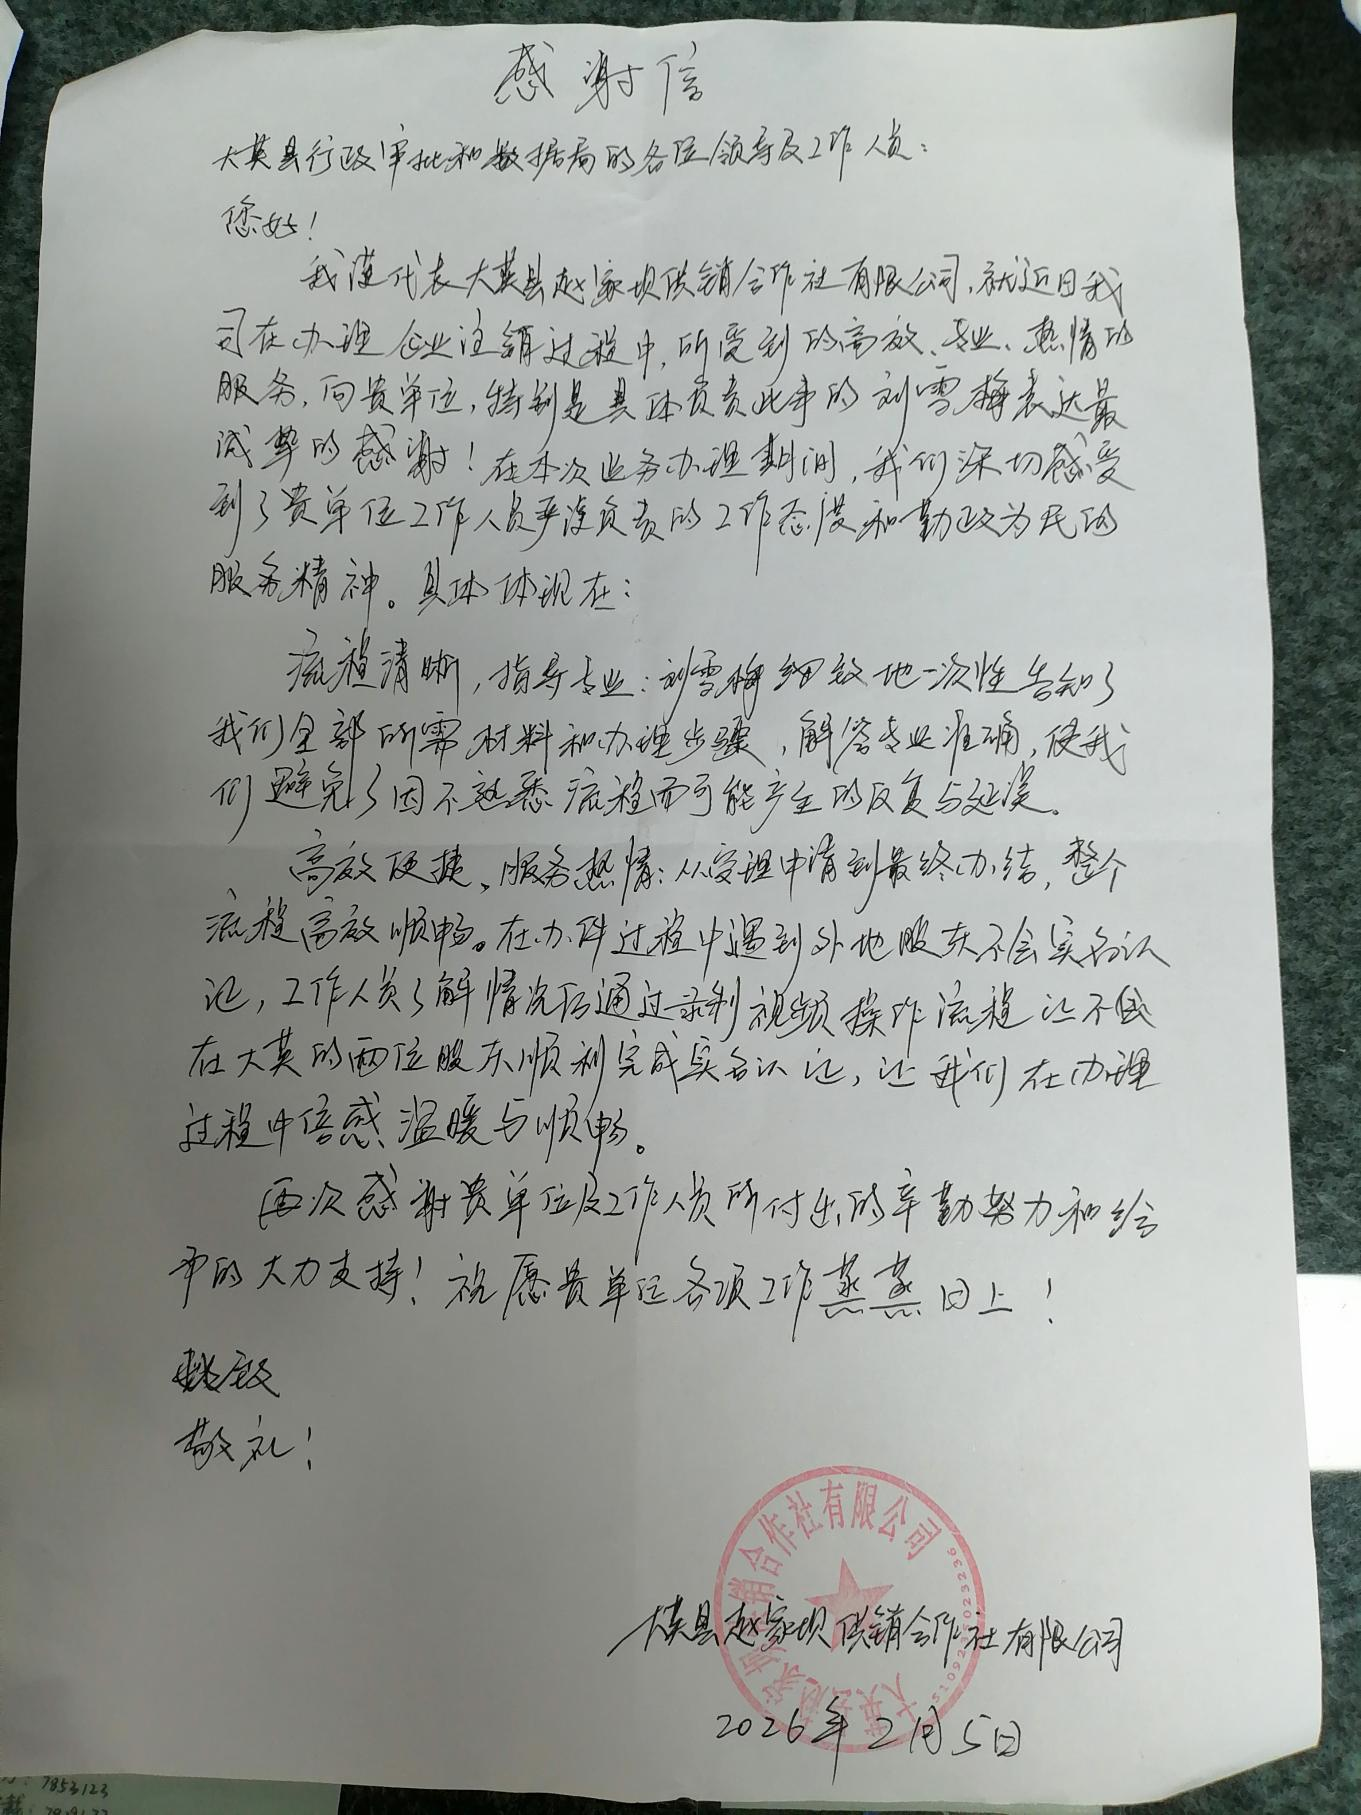 感谢信
大英县行政审批和数据局的各位领导及工作人员：
您好！
我谨代表大英县赵家坝供销合作社有限公司，就近日我
司在办理企业注销过程中，所受到的高效、专业、热情的
服务，向贵单位，特别是具体负责此事的刘雪梅表达最
诚挚的感谢！在本次业务办理期间，我们深切感受
到了贵单位工作人员严谨负责的工作态度和勤政为民的
服务精神。具体体现在：
流程清晰，指导专业：刘雪梅细致地一次性告知了
我们全部所需材料和办理步骤，解答专业准确，使我
们避免了因不熟悉流程而可能产生的反复与延误。
高效便捷、服务热情：从受理申请到最终办结，整个
流程高效顺畅。在办件过程中遇到外地股东不会实名认
证，工作人员了解情况后通过录制视频操作流程让不
在大英的两位股东顺利完成实名认证，让我们在办理
过程中倍感温暖与顺畅。
再次感谢贵单位及工作人员所付出的辛勤努力和给
予的大力支持！祝愿贵单位各项工作蒸蒸日上！
敬礼！
销合作社有限公司
大英县赵家坝供销合作社有限公司
2026年2月5日
7853123